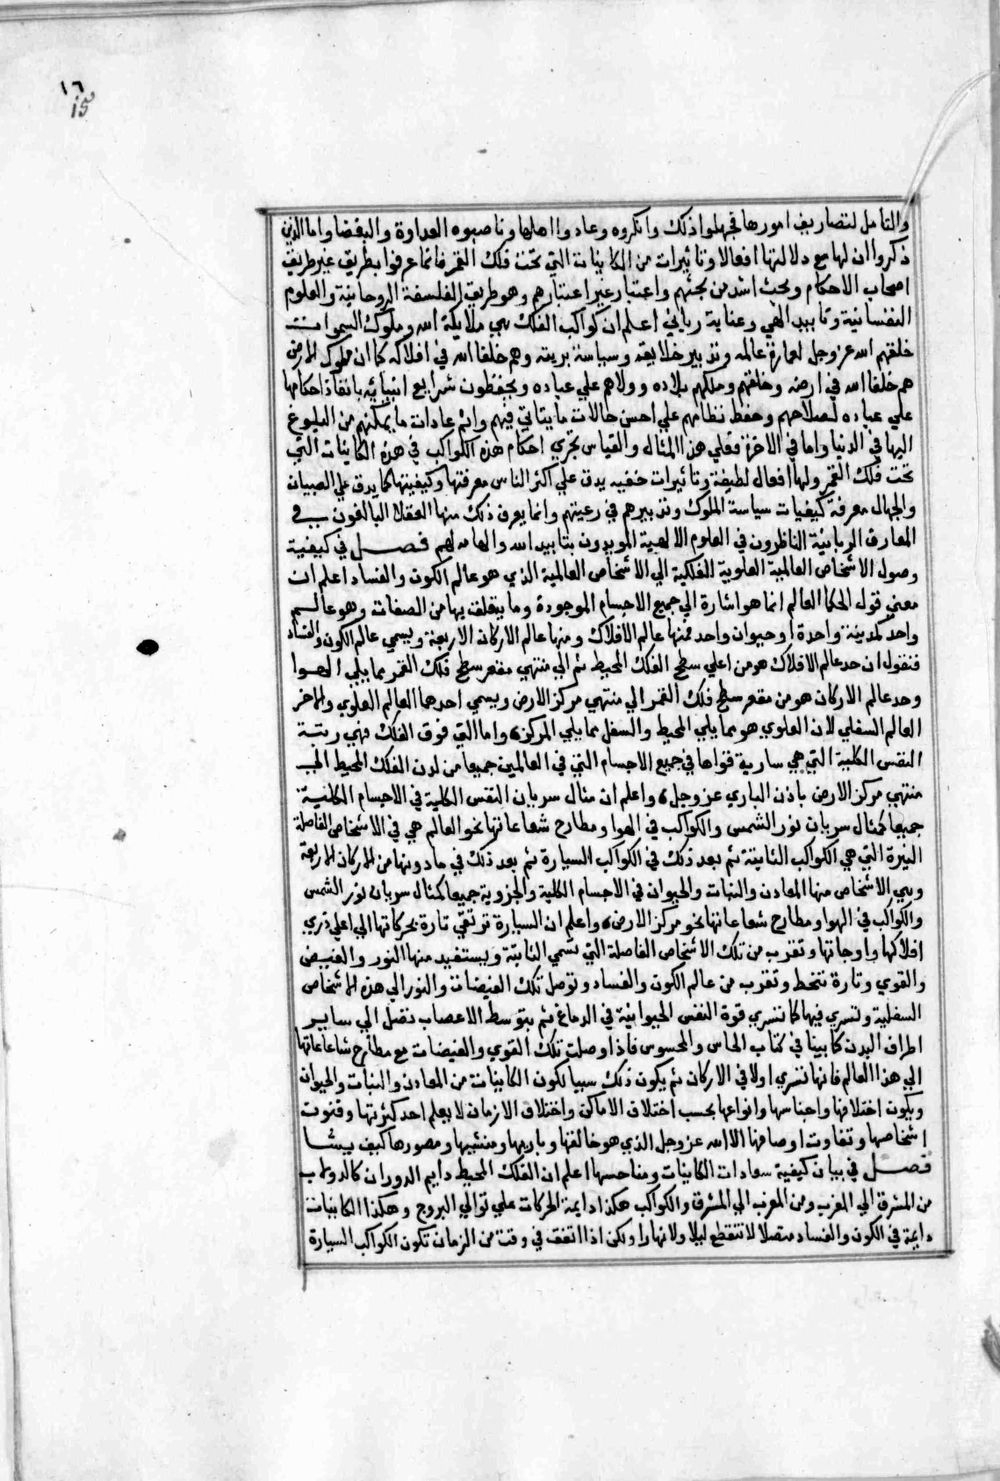 ١٦
15
والتامل لتصاريف امورها فجهلوا ذلك وانكروه وعادوا اهلها وناصبوه العداوة والبغضا واما الذين
ذكروا ان لها مع دلالتها افعالا وتاثيرات من الكاينات التي تحت فلك القمر فانما عرفوا بطريق غير طريق
اصحاب الاحكام وبحث اشد من بحثهم واعتبار غير اعتبارهم وهو طريق الفلسفة الروحانية والعلوم
النفسانية وتاييد الهي وعناية رباني اعلم ان كواكب الفلك هي ملايكة الله وملوك السموات
خلقهم الله عز وجل لعمارة عالمه وتدبير خلايقه وسياسة بريته وهم خلفا الله في افلاكه كما ان ملوك الارض
هم خلفا الله في ارضه وخلقهم وملكهم بلاده وولاهم علي عباده ويحفظون شرايع انبيائه بانفاذ احكامها
علي عباده لصلاحهم وحفظ نظامهم علي احسن حالات ما يتاتي فيهم واتم عادات ما يمكنهم من البلوغ
اليها في الدنيا واما في الاخرة فعلي هذا المثال والقياس تجري احكام هذه الكواكب في هذه الكاينات التي
تحت فلك القمر ولها افعال لطيفة وتاثيرات خفيه يدق علي اكثر الناس معرفتها وكيفيتها كما يدق علي الصبيان
والجهال معرفة كيفيات سياسة الملوك وتدبيرهم في رعيتهم وانما يعرف ذلك منها العقلا البالغون في
المعارف الربانية الناظرون في العلوم الالهية المويدون بتاييد الله والهامه لهم فصل في كيفية
وصول الاشخاص العالمية العلوية الفلكية الي الاشخاص العالمية الذي هو عالم الكون والفساد اعلم ان
معني قول الحكما العالم انما هو اشارة الي جميع الاجسام الموجودة وما يتعلق بها من الصفات وهو عالم
واحد كمدينة واحدة او حيوان واحد فمنها عالم الافلاك ومنها عالم الاركان الاربعة ويسمي عالم الكون والفساد
فنقول ان حد عالم الافلاك هو من اعلي سطح الفلك المحيط ثم الي منتهي مقعر سطح فلك القمر مما يلي الهوا
وحد عالم الاركان هو من مقعر سطح فلك القمر الي منتهي مركز الارض ويسمي احدهما العالم العلوي والاخر
العالم السفلي لان العلوي هو مما يلي المحيط والسفل مما يلي المركز واما التي فوق الفلك فهي رتبة
النفس الكلية التي هي سارية قواها في جميع الاجسام التي في العالمين جميعا من لدن الفلك المحيط الي
منتهي مركز الارض باذن الباري عز وجل واعلم ان مثال سريان النفس الكلية في الاجسام الكلية
جميعا كمثال سريان نور الشمس والكواكب في الهوا ومطارح شعاعاتها نحو العالم هي في الاشخاص الفاصلة
النيرة التي هي الكواكب الثابتة ثم بعد ذلك في الكواكب السيارة ثم بعد ذلك في ما دونها من الاركان الاربعة
وهي الاشخاص منها المعادن والنبات والحيوان في الاجسام الكلية والجزوية جميعا كمثال سريان نور الشمس
والكواكب في الهوا ومطارح شعاعاتها نحو مركز الارض واعلم ان السيارة ترتقي تارة بحركاتها الي اعلي ذري
افلاكها واوجاتها وتقرب من تلك الاشخاص الفاصلة التي تسمي الثابتة ويستفيد منها النور والفيض
والقوي وتارة تنحط وتقرب من عالم الكون والفساد وتوصل تلك الفيضانات والنور الي هذه الاشخاص
السفلية وتسري فيها كما تسري قوة النفس الحيوانية في الدماغ ثم بتوسط الاعصاب تصل الي ساير
اطراف البدن كما بينا في كتاب الحاس والمحسوس فاذا وصلت تلك القوي والفيضات مع مطارح شعاعاتها
الي هذا العالم فانها تسري اولا في الاركان ثم يكون ذلك سببا لكون الكاينات من المعادن والنبات والحيوان
ويكون اختلافها واجناسها وانواعها بحسب اختلاف الاماكن واختلاف الازمان لا يعلم احد كثرتها وفنون
اشخاصها وتفاوت اوصافها الا الله عز وجل الذي هو خالقها وباريها ومنشيها ومصورها كيف يشا
فصل في بيان كيفية سعادات الكاينات ومناحسها اعلم ان الفلك المحيط دايم الدوران كالدولاب
من المشرق الي المغرب ومن المغرب الي المشرق والكواكب هكذا دايمة الحركات علي توالي البروج وهكذا الكاينات
دايمة في الكون والفساد متصلا لا تنقطع ليلا ولا نهارا ولكن اذا اتفق في وقت من الزمان تكون الكواكب السيارة